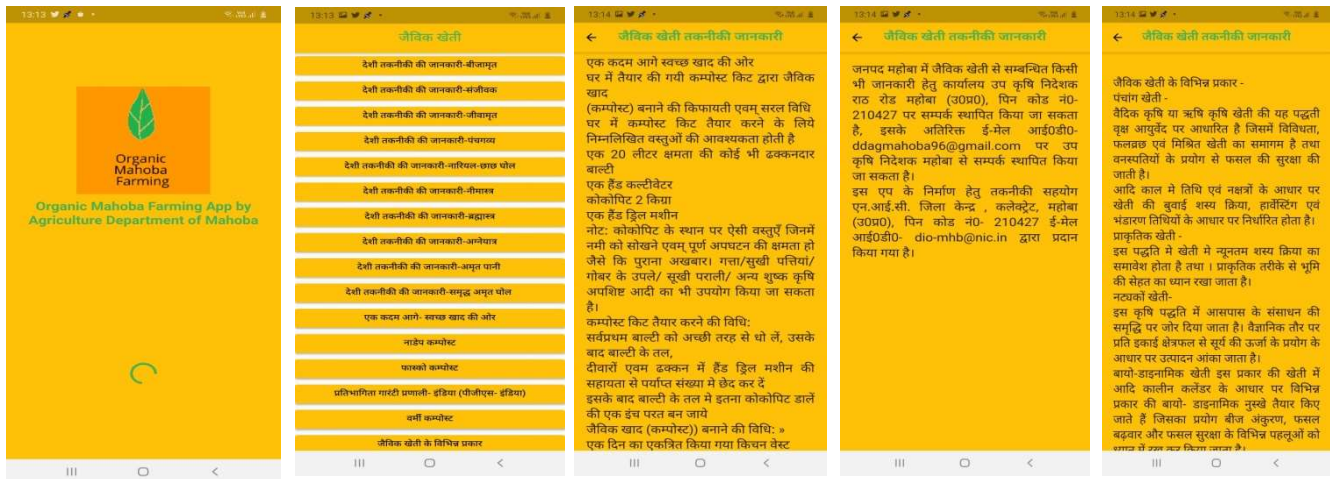 13:13
Organic
Mahoba
Farming
Organic Mahoba Farming App by
Agriculture Department of Mahoba
13:13
जैविक खेती
देशी तकनीकी की जानकारी-बीजामृत
देशी तकनीकी की जानकारी-संजीवक
देशी तकनीकी की जानकारी-जीवामृत
देशी तकनीकी की जानकारी-पंचगव्य
देशी तकनीकी की जानकारी-नारियल-छाछ घोल
देशी तकनीकी की जानकारी-नीमास्त्र
देशी तकनीकी की जानकारी-ब्रह्मास्त्र
देशी तकनीकी की जानकारी-अग्नेयास्त्र
देशी तकनीकी की जानकारी-अमृत पानी
देशी तकनीकी की जानकारी-समृद्ध अमृत घोल
एक कदम आगे- स्वच्छ खाद की ओर
नाडेप कम्पोस्ट
फास्को कम्पोस्ट
प्रतिभागिता गारंटी प्रणाली- इंडिया (पीजीएस- इंडिया)
वर्मी कम्पोस्ट
जैविक खेती के विभिन्न प्रकार
13:14
जैविक खेती तकनीकी जानकारी
एक कदम आगे स्वच्छ खाद की ओर
घर में तैयार की गयी कम्पोस्ट किट द्वारा जैविक
खाद
(कम्पोस्ट) बनाने की किफायती एवम् सरल विधि
घर में कम्पोस्ट किट तैयार करने के लिये
निम्नलिखित वस्तुओं की आवश्यकता होती है
एक 20 लीटर क्षमता की कोई भी ढक्कनदार
बाल्टी
एक हैंड कल्टीवेटर
कोकोपिट 2 किग्रा
एक हैंड ड्रिल मशीन
नोट: कोकोपिट के स्थान पर ऐसी वस्तुएँ जिनमें
नमी को सोखने एवम् पूर्ण अपघटन की क्षमता हो
जैसे कि पुराना अखबार। गत्ता/सुखी पत्तियां/
गोबर के उपले/ सूखी पराली/ अन्य शुष्क कृषि
अपशिष्ट आदी का भी उपयोग किया जा सकता
है।
कम्पोस्ट किट तैयार करने की विधि:
सर्वप्रथम बाल्टी को अच्छी तरह से धो लें, उसके
बाद बाल्टी के तल,
दीवारों एवम ढक्कन में हैंड ड्रिल मशीन की
सहायता से पर्याप्त संख्या मे छेद कर दें
इसके बाद बाल्टी के तल मे इतना कोकोपिट डालें
की एक इंच परत बन जाये
जैविक खाद (कम्पोस्ट)) बनाने की विधि: »
एक दिन का एकत्रित किया गया किचन वेस्ट
13:14
जैविक खेती तकनीकी जानकारी
जनपद महोबा में जैविक खेती से सम्बन्धित किसी
भी जानकारी हेतु कार्यालय उप कृषि निदेशक
राठ रोड महोबा (उ0प्र0), पिन कोड नं0-
210427 पर सम्पर्क स्थापित किया जा सकता
है, इसके अतिरिक्त ई-मेल आई0डी0-
ddagmahoba96@gmail.com पर उप
कृषि निदेशक महोबा से सम्पर्क स्थापित किया
जा सकता है।
इस एप के निर्माण हेतु तकनीकी सहयोग
एन.आई.सी. जिला केन्द्र , कलेक्ट्रेट, महोबा
(उ0प्र0), पिन कोड नं0- 210427 ई-मेल
आई0डी0- dio-mhb@nic.in द्वारा प्रदान
किया गया है।
13:14
जैविक खेती तकनीकी जानकारी
जैविक खेती के विभिन्न प्रकार -
पंचांग खेती -
वैदिक कृषि या ऋषि कृषि खेती की यह पद्धती
वृक्ष आयुर्वेद पर आधारित है जिसमें विविधता,
फलव्रछ एवं मिश्रित खेती का समागम है तथा
वनस्पतियों के प्रयोग से फसल की सुरक्षा की
जाती है।
आदि काल मे तिथि एवं नक्षत्रों के आधार पर
खेती की बुवाई शस्य क्रिया, हार्वेस्टिंग एवं
भंडारण तिथियों के आधार पर निर्धारित होता है।
प्राकृतिक खेती -
इस पद्धति मे खेती मे न्यूनतम शस्य क्रिया का
समावेश होता है तथा । प्राकृतिक तरीके से भूमि
की सेहत का ध्यान रखा जाता है।
नट्यकों खेती-
इस कृषि पद्धति में आसपास के संसाधन की
समृद्धि पर जोर दिया जाता है। वैज्ञानिक तौर पर
प्रति इकाई क्षेत्रफल से सूर्य की ऊर्जा के प्रयोग के
आधार पर उत्पादन आंका जाता है।
बायो-डाइनामिक खेती इस प्रकार की खेती में
आदि कालीन कलेंडर के आधार पर विभिन्न
प्रकार की बायो- डाइनामिक नुस्खे तैयार किए
जाते हैं जिसका प्रयोग बीज अंकुरण, फसल
बढ़वार और फसल सुरक्षा के विभिन्न पहलूओं को
ध्यान में रख कर किया जाता है।